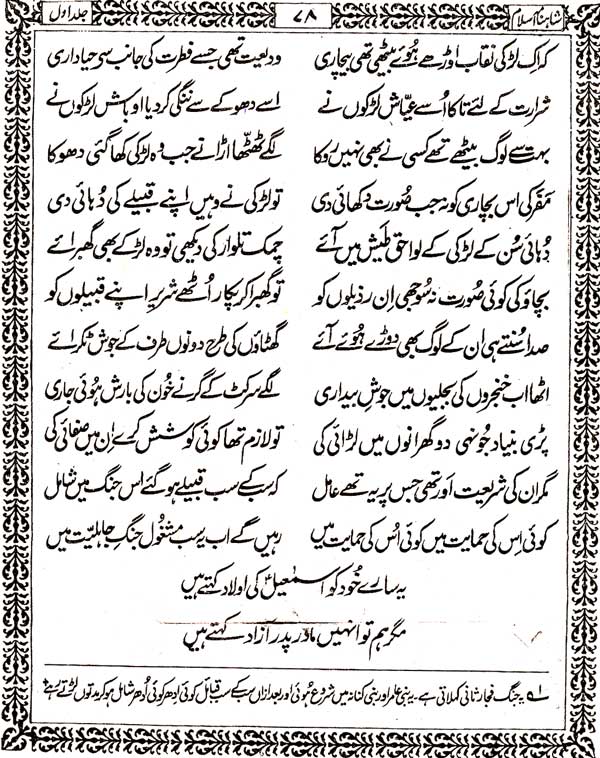 شاہنامۂ اسلام ۷۸ جلد اول
کہ اک لڑکی نقاب اوڑھے ہوئے بیٹھی تھی بیچاری ودیعت تھی جسے فطرت کی جانب سے حیاداری
شرارت کے لئے تاکا اُسے عیّاش لڑکوں نے اسے دھوکے سے ننگی کر دیا اوباش لڑکوں نے
بہت سے لوگ بیٹھے تھے کسی نے بھی نہیں روکا لگے ٹھٹھا اڑانے جب وہ لڑکی کھا گئی دھوکا
مفر کی اس بچاری کو نہ جب صُورت دکھائی دی تو لڑکی نے وہیں اپنے قبیلے کی دُہائی دی
دُہائی سُن کے لڑکی کے لواحق طَیش میں آئے چمک تلوار کی دیکھی تو وہ لڑکے بھی گھبرائے
بچاؤ کی کوئی صُورت نہ سُوجھی اِن رذیلوں کو تو گھبرا کر پکار اُٹھے شریر اپنے قبیلوں کو
صدا سُنتے ہی ان کے لوگ بھی دوڑے ہُوئے آئے گھٹاؤں کی طرح دونوں طرف کے جوش ٹکرائے
اٹھا اب خنجروں کی بجلیوں میں جوشِ بیداری لگے سر کٹ کے گرنے خُون کی بارش ہوئی جاری
پڑی بنیاد جُونہی دو گھرانوں میں لڑائی کی تو لازم تھا کوئی کوشش کرے اِن میں صفائی کی
مگر ان کی شریعت اور تھی جس پر یہ تھے عامل کہ سب کے سب قبیلے ہو گئے اس جنگ میں شامل
کوئی اِس کی حمایت میں کوئی اُس کی حمایت میں رہیں گے اب یہ سب مشغُول جنگِ جاہلیّت میں
یہ سارے خُود کو اسمٰعیلؑ کی اولاد کہتے ہیں
مگر ہم تو انہیں مادر پدر آزاد کہتے ہیں
۱؎ یہ جنگ فجار ثانی کہلاتی ہے۔ یہ بنی عامر اور بنی کنانہ میں شروع ہوئی اور بعد ازاں سب کے سب قبائل کوئی اِدھر کوئی اُدھر شامل ہو کر مدتوں لڑتے رہے